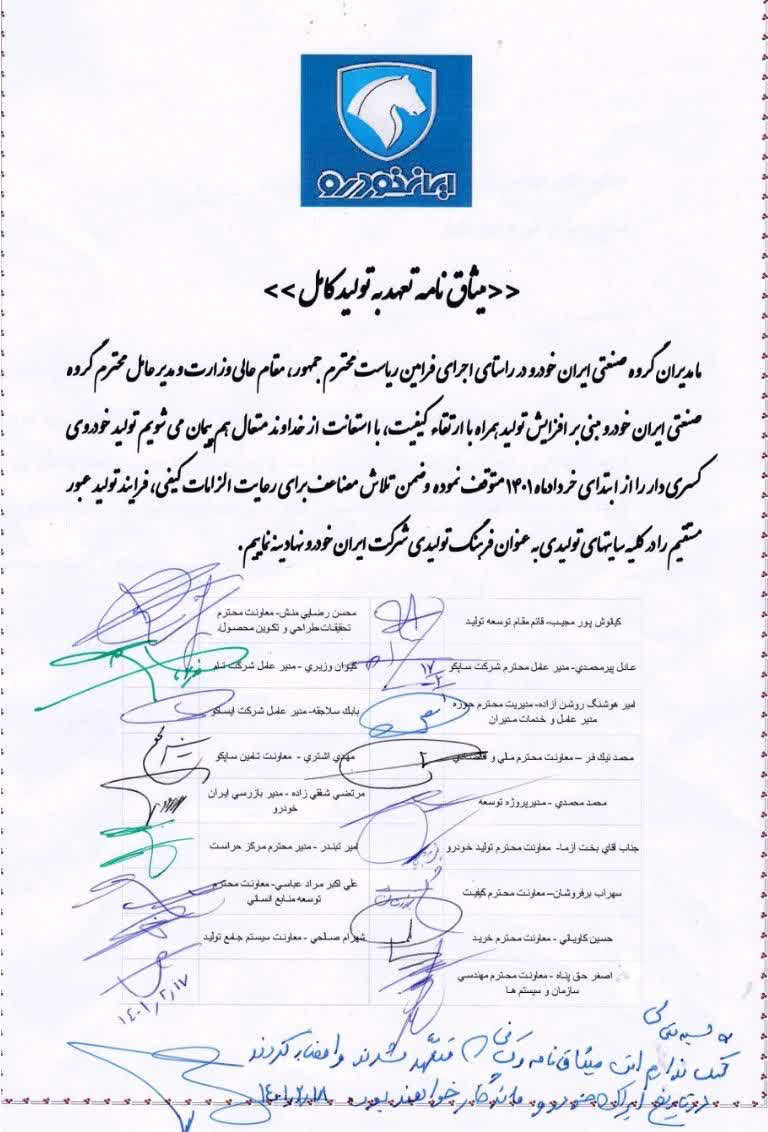 ایران خودرو
<<میثاق نامه تعهد به تولید کامل>>
ما مدیران گروه صنعتی ایران خودرو در راستای اجرای فرامین ریاست محترم جمهور، مقام عالی وزارت و مدیر عامل محترم گروه
صنعتی ایران خودرو مبنی بر افزایش تولید همراه با ارتقاء کیفیت، با استعانت از خداوند متعال هم پیمان می شویم تولید خودروی
کسری دار را از ابتدای خرداد ماه ۱۴۰۱ متوقف نموده و ضمن تلاش مضاعف برای رعایت الزامات کیفی، فرایند تولید عبور
مستقیم را در کلیه سایتهای تولیدی به عنوان فرهنگ تولیدی شرکت ایران خودرو نهادینه نماییم.
کیانوش پور مجیب- قائم مقام توسعه تولید
محسن رضایی منش- معاونت محترم
تحقیقات،طراحی و تکوین محصول.
عادل پیرمحمدی- مدیر عامل محترم شرکت ساپکو
کیوان وزیری - مدیر عامل شرکت تام
امیر هوشنگ روشن آزاده- مدیریت محترم حوزه
مدیر عامل و خدمات مدیران
بابک سلاجقه- مدیر عامل شرکت ایسکو
محمد نیک فر – معاونت محترم مالی و اقتصادی
مهدی اشتری - معاونت تامین ساپکو
محمد محمدی - مدیرپروژه توسعه
مرتضی شفقی زاده - مدیر بازرسی ایران
خودرو
جناب آقای بخت آزما- معاونت محترم تولید خودرو
امیر تیندر - مدیر محترم مرکز حراست
سهراب برفروشان– معاونت محترم کیفیت
علی اکبر مراد عباسی- معاونت محترم
توسعه منابع انسانی
حسین کاویانی - معاونت محترم خرید
شهرام صالحی - معاونت سیستم جامع تولید
اصغر حق پناه - معاونت محترم مهندسی
سازمان و سیستم ها
۱۴۰۱/۲/۱۷
شک ندارم این میثاق نامه و کسانی متعهد شدند و امضاء کردند
در تاریخ ایران خودرو ماندگار خواهند بود ۱۴۰۱/۲/۱۸